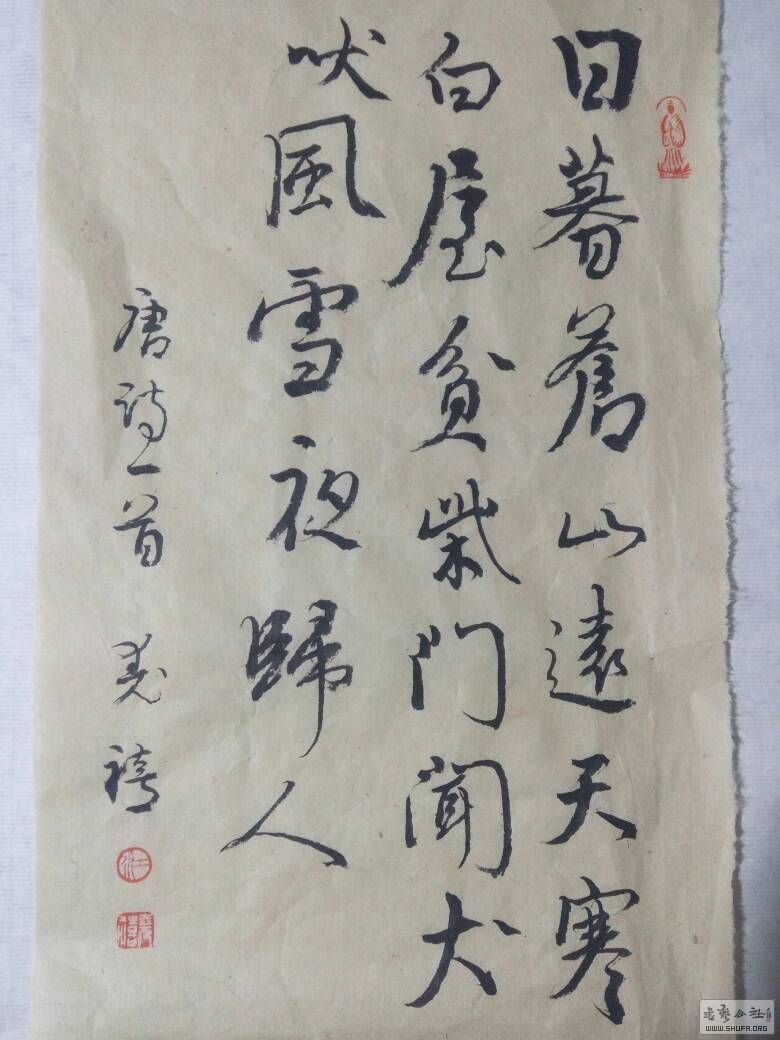 日暮蒼山遠天寒
白屋貧柴門聞犬
吠風雪夜歸人
唐詩一首 禧
書藝公社
WWW.SHUFA.ORG